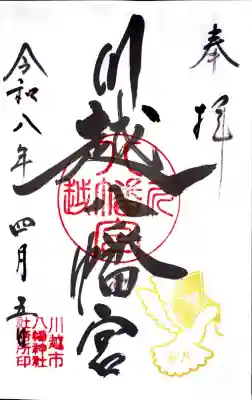 奉拝
川越八幡宮
令和八年四月五日
川越市
八幡神社
社務所印